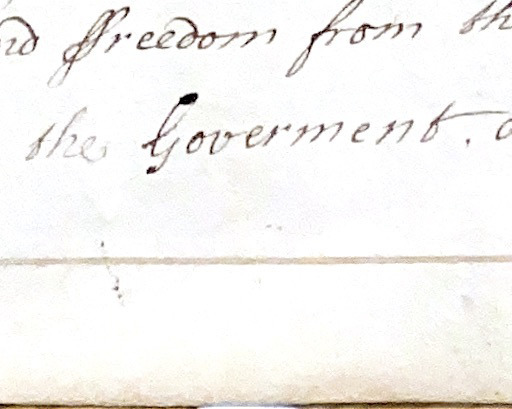 nd ffreedom from th
the Goverment.